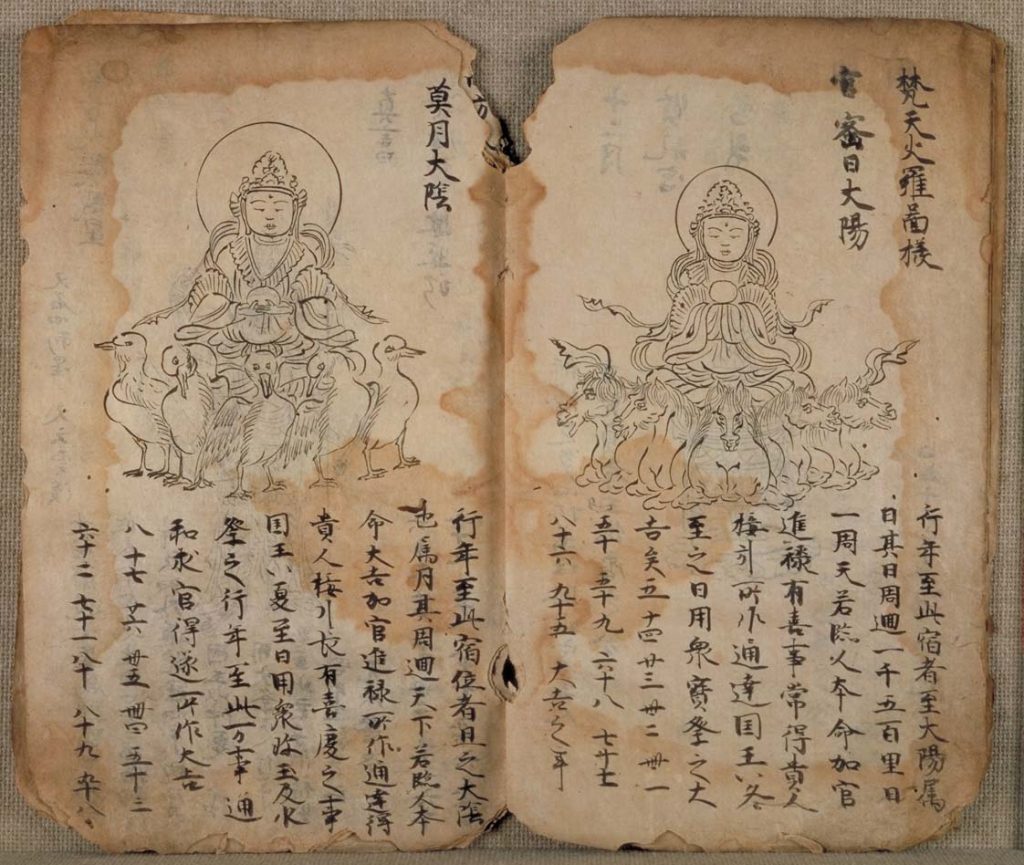 梵天火羅啚樣
密日大陽
行年至此宿者至大陽属
日其日周迴一千五百里日
一周天若臨人本命加官
進禄有喜事常得貴人
接引所作通達国王以冬
至之日用衆寳祭之大
吉矣五十四廿三卅二卌一
五十 五十九 六十八 七十七
八十六 九十五 大吉之年
莫月大陰
行年至此宿位者且之大陰
也属月其周迴天下若臨人本
命大吉加官進禄所作通達得
貴人接引长有喜慶之事
国王以夏至日用衆珎玉及水
祭之行年至此万事通
和求官得遂所作大吉
八 十七 廿六 卅五 卌四 五十三
六十二 七十一 八十 八十九